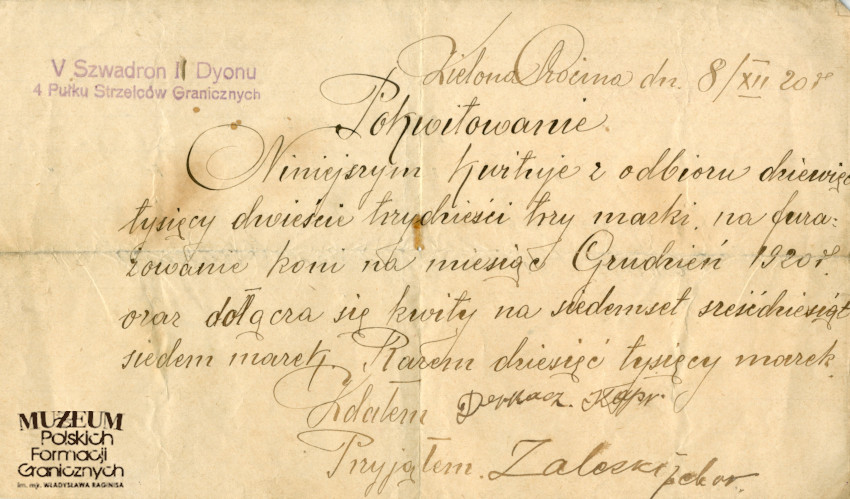 V Szwadron II Dyonu
4 Pułku Strzelców Granicznych
Zielona Rocima dn. 8/XII 20 r
Pokwitowanie.
Niniejszym kwituje z odbioru dziewięć
tysięcy dwieście trzydzieści trzy marki, na fura-
żowanie koni na miesiąc Grudzień 1920 r.
oraz dołącza się kwity na siedemset sześćdziesiąt
siedem marek. Razem dziesięć tysięcy marek.
Zdałem Derkacz. Kapr.
Przyjąłem. Zaleski pchor.
MUZEUM
Polskich
Formacji
Granicznych
im. mjr. WŁADYSŁAWA RAGINISA